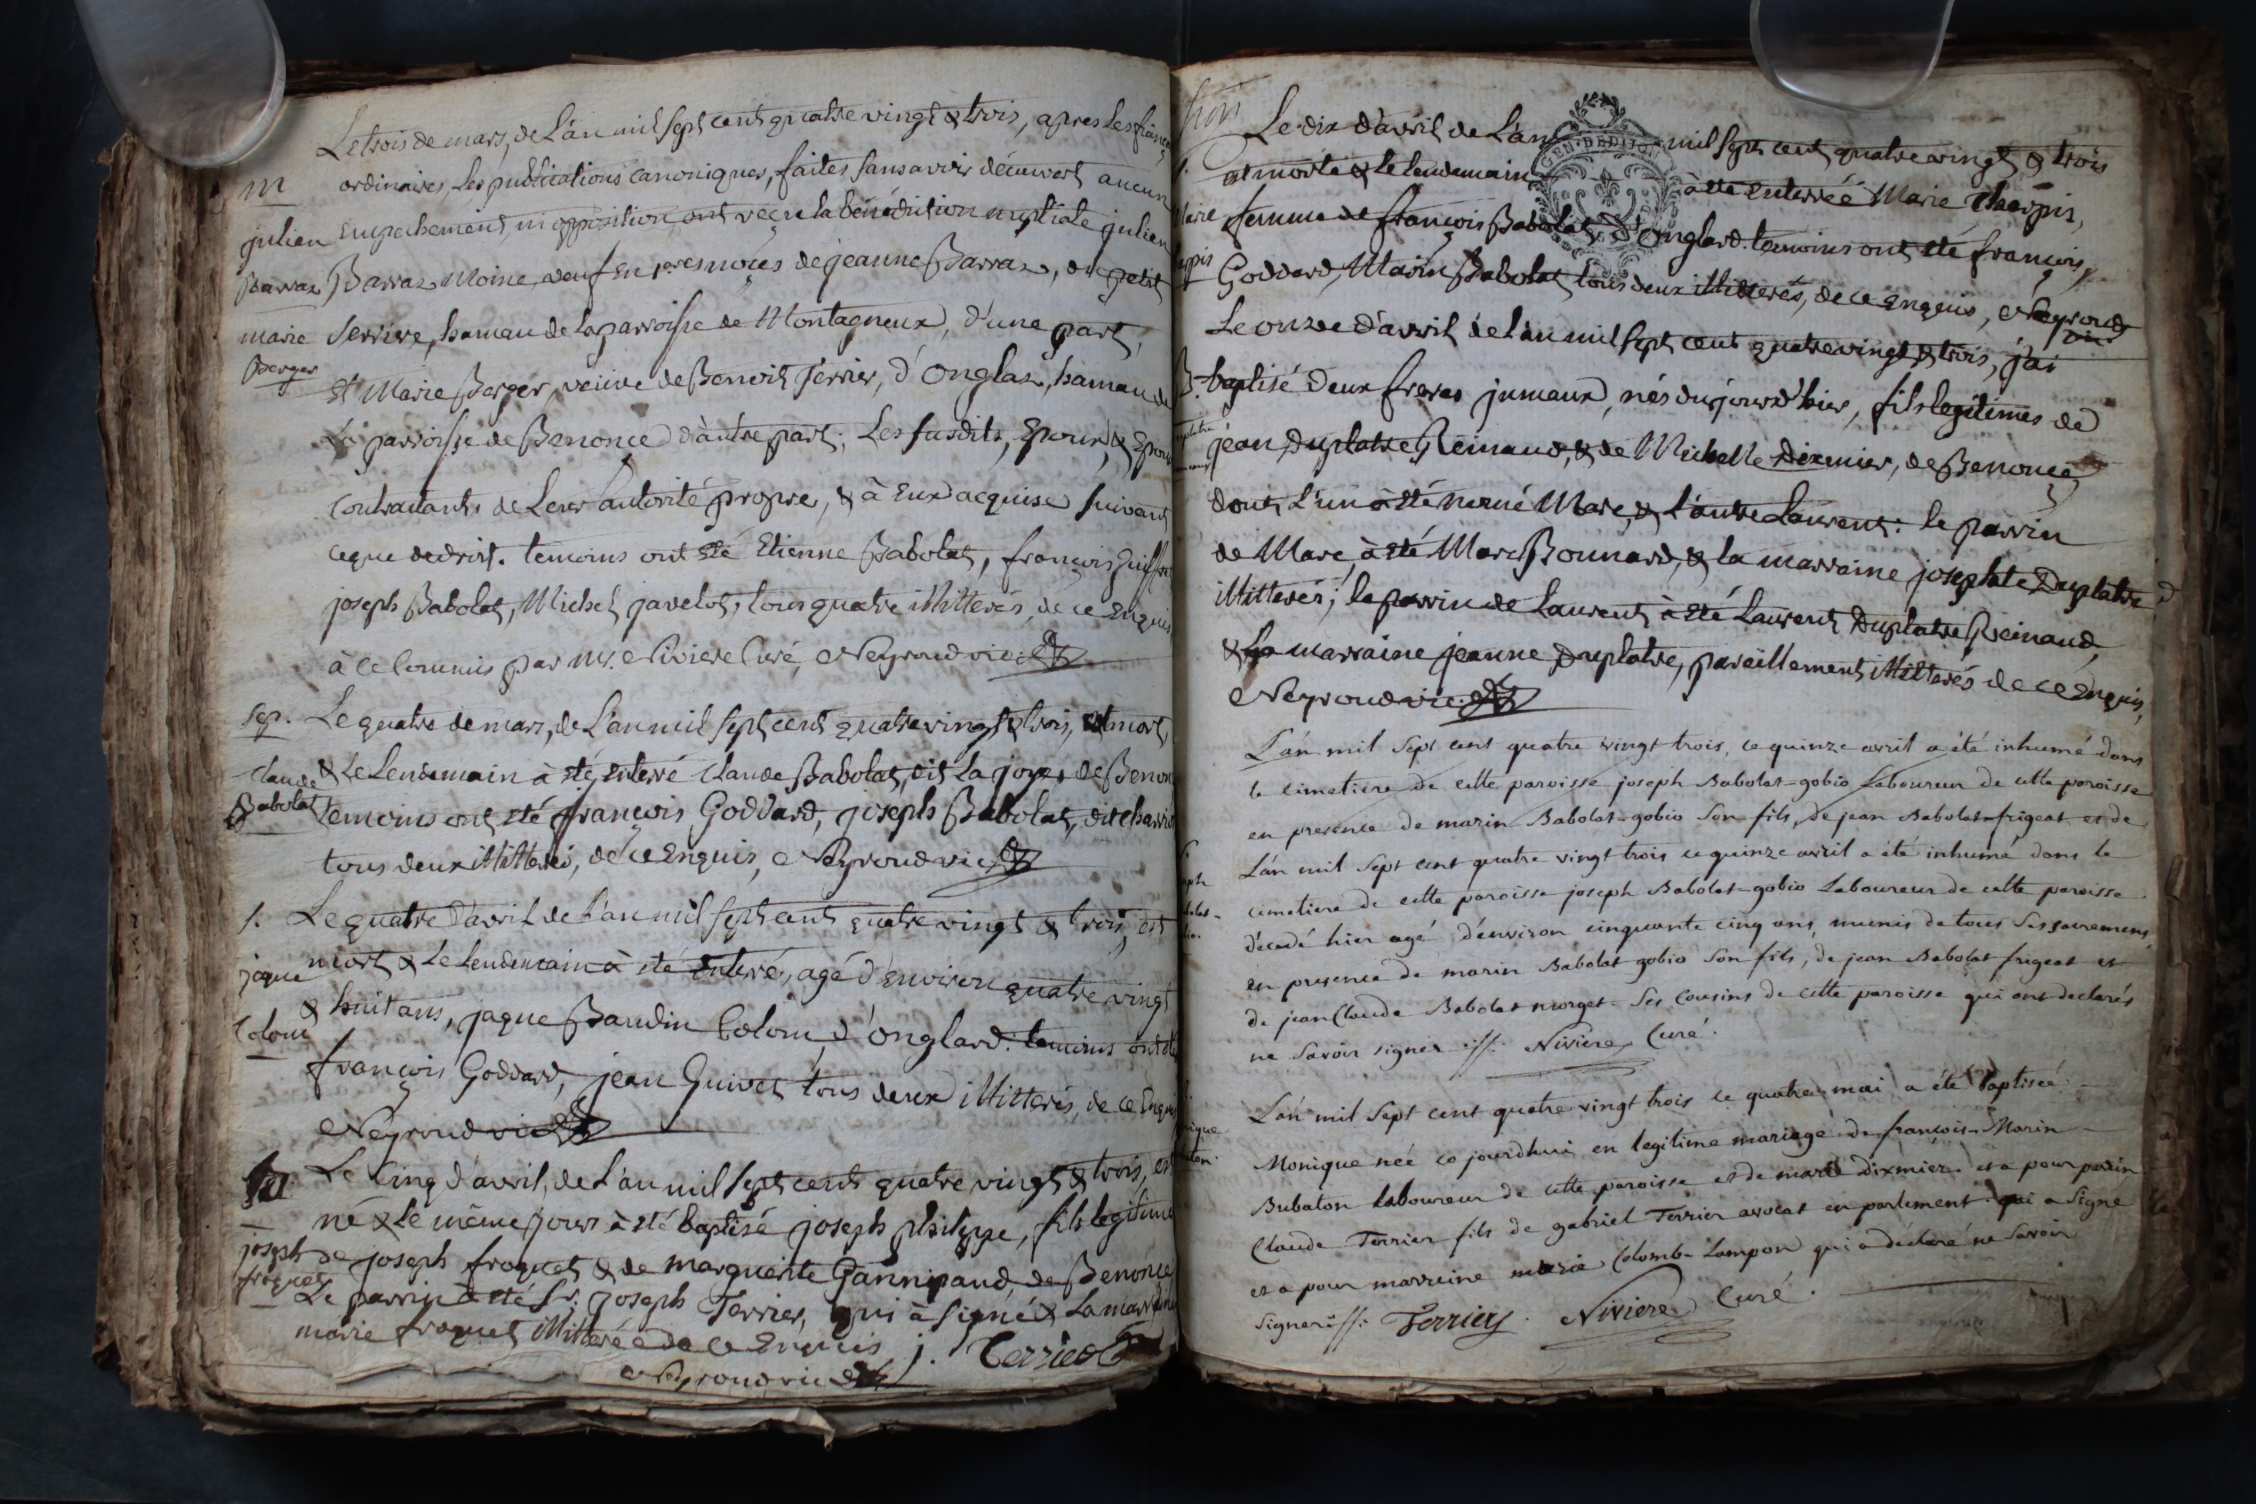 Le trois de mars, de L'an mil sept cent quatre vingt & trois, apres Les fiançailles
m
ordinaires, Les publications canoniques, faites sans avoir découvert aucun
julien
Empechement, ni opposition, ont reçu la bénédiction nuptiale julien
Barraz
Barraz Moine, veuf en 1res noces de jeanne Barraz, de petit
marie
Serriere, hameau de la parroisse de Montagneux, d'une part,
Berger
Et Marie Berger, veuve de Benoit Ferrier, d'Onglaz, hameau de
La parroisse de Benonce d'autre part; Les susdits, Epoux & Epouse
Contractants de Leur autorité propre, & à Eux acquise suivant
ce que de droit. temoins ont été Etienne Babolat, françois
joseph Babolat, Michel javelot, tous quatre illitterés, de ce Enquis
à ce Commis par Mr. Niviere Curé, Neyroud vic.
sep.
Le quatre de mars, de L'an mil sept cent quatre vingt & trois, est mort,
Claude
& Le Lendemain à été enterré Claude Babolat, dit La joye, de Benonce
Babolat
temoins ont été françois Goddard, joseph Babolat, dit charriot
tous deux illitterés, de ce Enquis, Neyroud vic.
S.
Le quatre d'avril de L'an mil sept cent quatre vingt & trois, est
mort & Le Lendemain à été enterré, agé d'environ quatre vingt
jaque
& huit ans, jaque Baudin Colom d'Onglard. temoins ont été
Colom
françois Goddard, jean Guivet, tous deux illitterés, de ce Enquis
Neyroud vic.
Le Cinq d'avril, de L'an mil sept cent quatre vingt & trois, est
né & Le même jour à été baptisé joseph philippe, fils legitime
joseph
de joseph froquet & de marguerite Gannipaud, de Benonce
froquet
Le parrin à été Sr. joseph Terrier, qui à signé & La marraine
marie froquet illitterée de ce Enquis j. Terrier
Neyroud vic.
trois
Le dix d'avril de L'an mil sept cent quatre vingt & trois
est morte & Le Lendemain à été enterrée Marie
femme de françois Babolat, d'Onglard. temoins ont été françois
Goddard, Marin Babolat tous deux illitterés, de ce enquis, Neyroud
vic.
Le onze d'avril de L'an mil sept cent quatre vingt & trois, j'ai
B.
baptisé deux freres jumaux, nés du jour d'hier, fils legitimes de
jean Duplatre Reinaud, & de Michelle Dixmier, de Benonce
dont L'un à été nomé Marc, & L'autre Laurent: le parrin
de Marc, à été Marc Bonnard, & la marraine josephte Duplatre
illitterés; le parrin de Laurent à été Laurent Duplatre Reinaud,
& La marraine jeanne Duplatre, pareillement illitterés de ce Enquis,
Neyroud vic.
L'an mil Sept cent quatre vingt trois, ce quinze avril a été inhumé dans
le cimetiere de cette paroisse joseph Babolat-gobio Laboureur de cette paroisse
en presence de marin Babolat-gobio Son fils, de jean Babolat-frigeat et de
L'an mil Sept cent quatre vingt trois ce quinze avril a été inhumé dans le
cimetiere de cette paroisse joseph Babolat-gobio Laboureur de cette paroisse
décédé hier agé d'environ cinquante cinq ans, munis de tous Ses sacremens,
en presence de marin Babolat gobio Son fils, de jean Babolat frigeat et
de jean Claude Babolat morget Ses Cousins de cette paroisse qui ont declarés
ne Savoir signer Niviere, Curé.
L'an mil Sept cent quatre vingt trois ce quatre mai a été baptiseé
Monique neé ce jourdhui en legitime mariage de françois-Marin
Bubaton laboureur de cette paroisse et de marie Dixmier et a pour parin
Claude Terrier fils de gabriel Terrier avocat en parlement qui a Signé
et a pour marreine marie Colombe Lampon qui a déclaré ne Savoir
Signer Terrier. Niviere Curé.